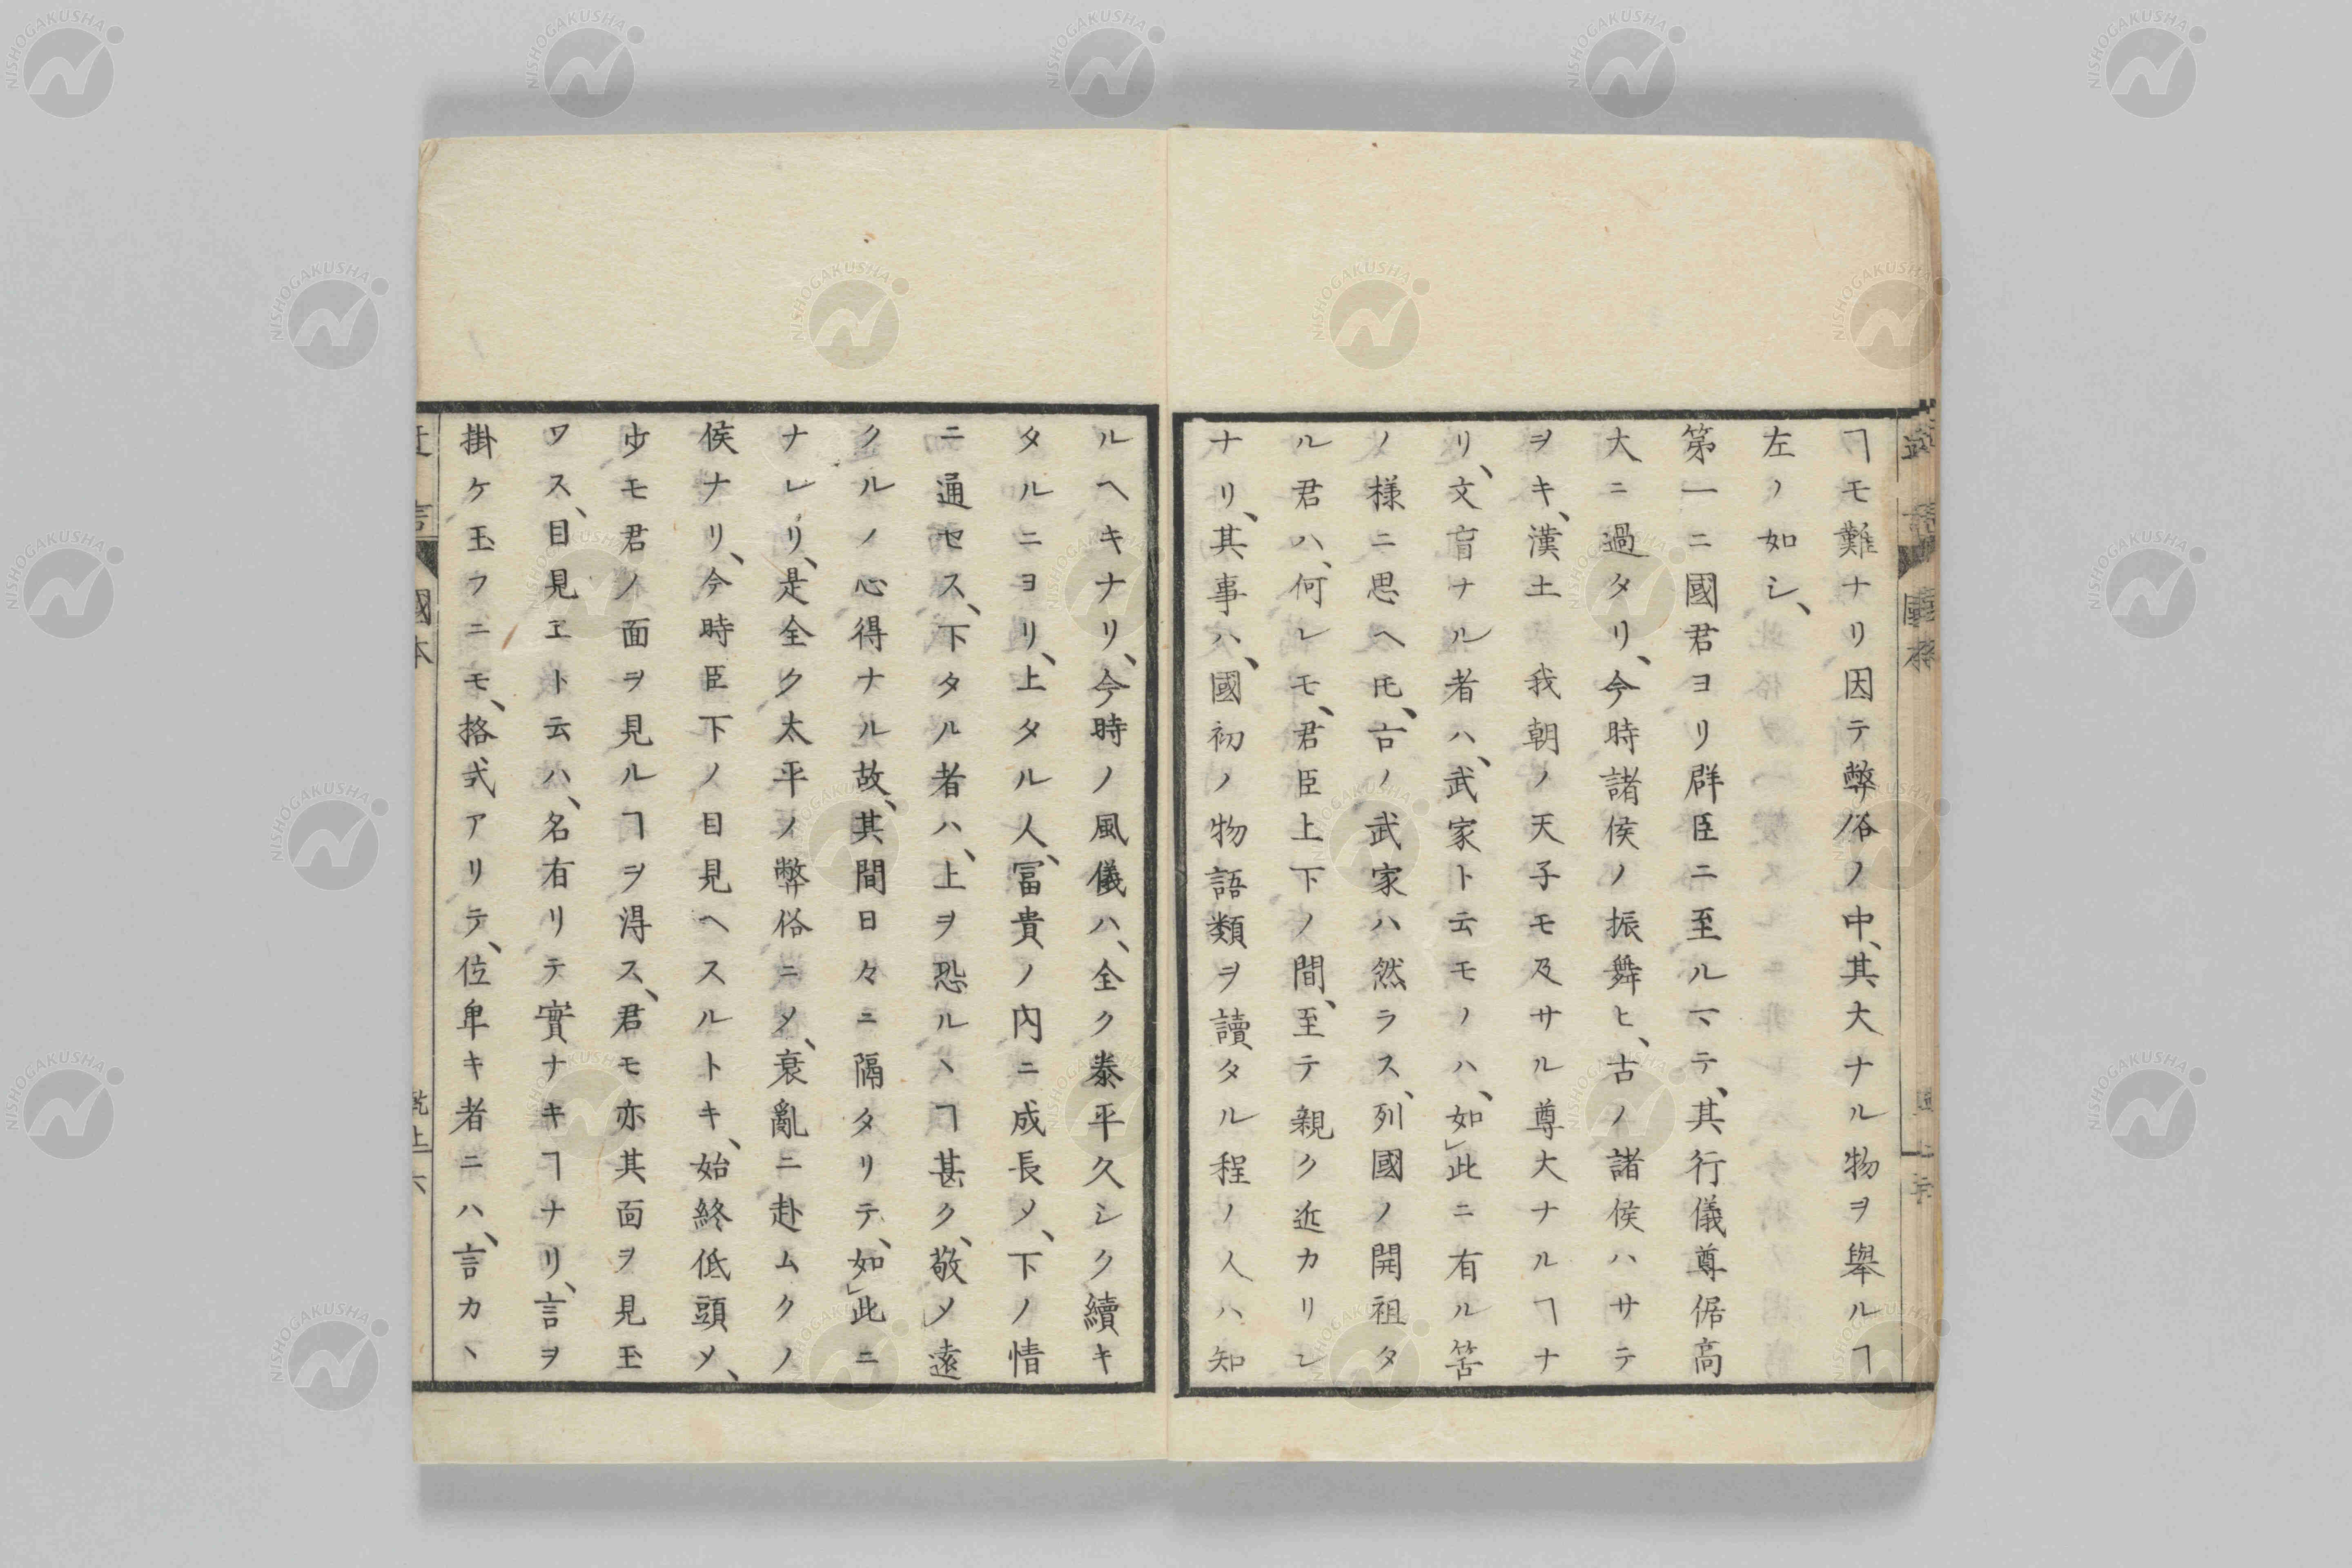 ヿモ難ナリ因テ弊俗ノ中、其大ナル物ヲ舉ルヿ
左ノ如シ、
第一ニ國君ヨリ群臣ニ至ルマテ、其行儀尊倨高
大ニ過タリ、今時諸侯ノ振舞ヒ、古ノ諸侯ハサテ
ヲキ、漢土 我朝ノ天子モ及サル尊大ナルヿナ
リ、文盲ナル者ハ、武家ト云モノハ、如」此ニ有ル筈
ノ樣ニ思ヘ𪜈、古ノ武家ハ然ラス、列國ノ開祖タ
ル君ハ、何レモ、君臣上下ノ間、至テ親ク近カリシ
ナリ、其事ハ、國初ノ物語類ヲ讀タル程ノ人ハ知
ルヘキナリ、今時ノ風儀ハ、全ク泰平久シク續キ
タルニヨリ、上タル人、冨貴ノ内ニ成長〆、下ノ情
ニ通セス、下タル者ハ、上ヲ恐ルヽヿ甚ク、敬〆遠
クルノ心得ナル故、其間日々ニ隔タリテ、如」此ニ
ナレリ、是全ク太平ノ弊俗ニ〆、衰亂ニ赴ムクノ
候ナリ、今時臣下ノ目見ヘスルトキ、始終低頭〆、
少モ君ノ面ヲ見ルヿヲ得ス、君モ亦其面ヲ見玉
ワス、目見エト云ハ、名有リテ實ナキヿナリ、言ヲ
掛ケ玉フニモ、格式アリテ、位卑キ者ニハ、言カヽ
國本
NISHOGAKUSHA